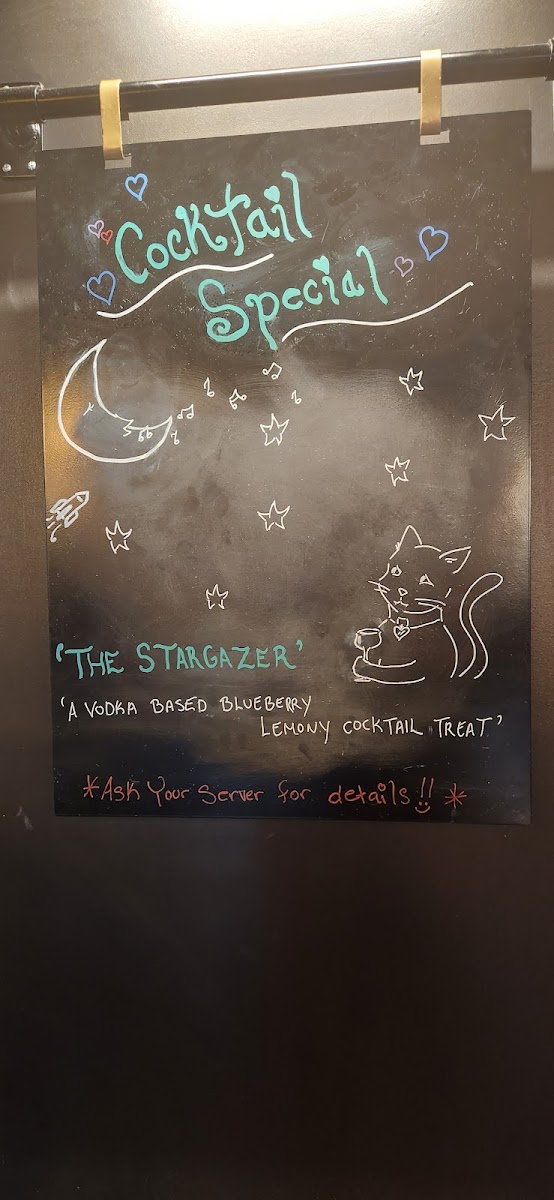 Cocktail
Special
'THE STARGAZER'
'A VODKA BASED BLUEBERRY
LEMONY COCKTAIL TREAT'
*Ask Your Server for details!!*